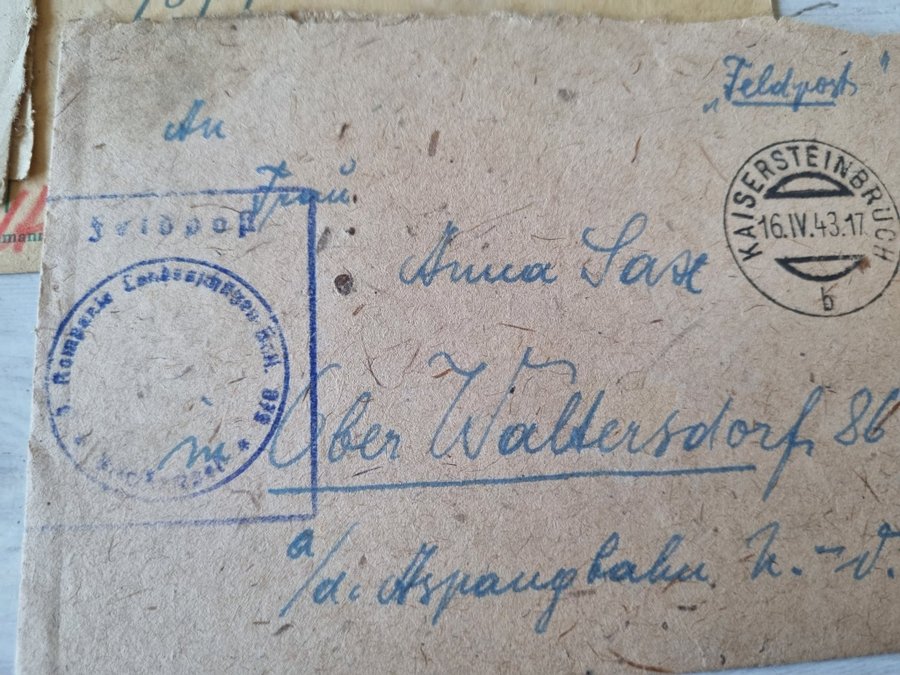 „Feldpost"
An
Frau
Anna Saxe
in Ober Waltersdorf, 86
a/d. Aspangbahn N.-D.
KAISERSTEINBRUCH
16.IV.43.17
b
Feldpost
Kompanie Landesschützen Batl.
mann